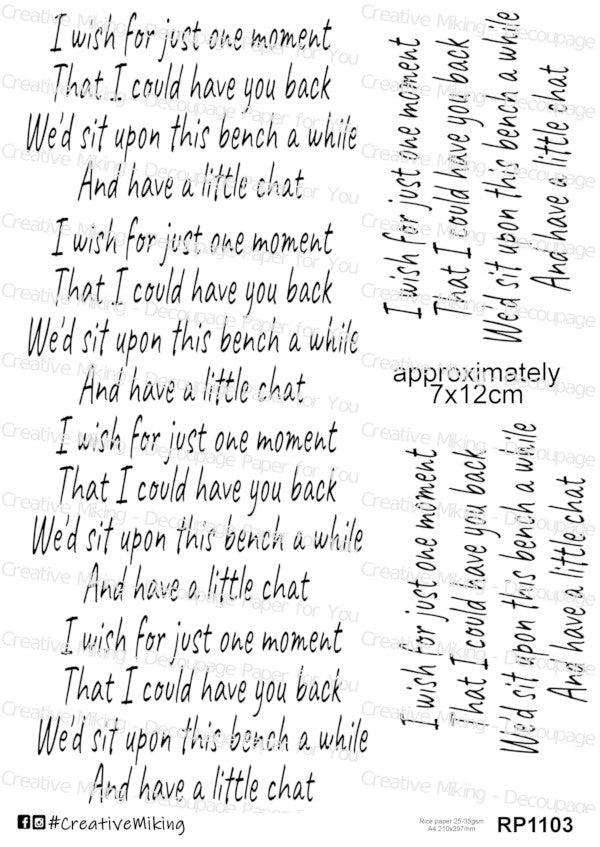 I wish for just one moment
That I could have you back
We'd sit upon this bench a while
And have a little chat
I wish for just one moment
That I could have you back
We'd sit upon this bench a while
And have a little chat
I wish for just one moment
That I could have you back
We'd sit upon this bench a while
And have a little chat
I wish for just one moment
That I could have you back
We'd sit upon this bench a while
And have a little chat
I wish for just one moment
That I could have you back
We'd sit upon this bench a while
And have a little chat
approximately
7x12cm
I wish for just one moment
That I could have you back
We'd sit upon this bench a while
And have a little chat
#CreativeMiking
Rice paper 25-35gsm
A4 210x297mm
RP1103
Creative Miking - Decoupage Paper for You